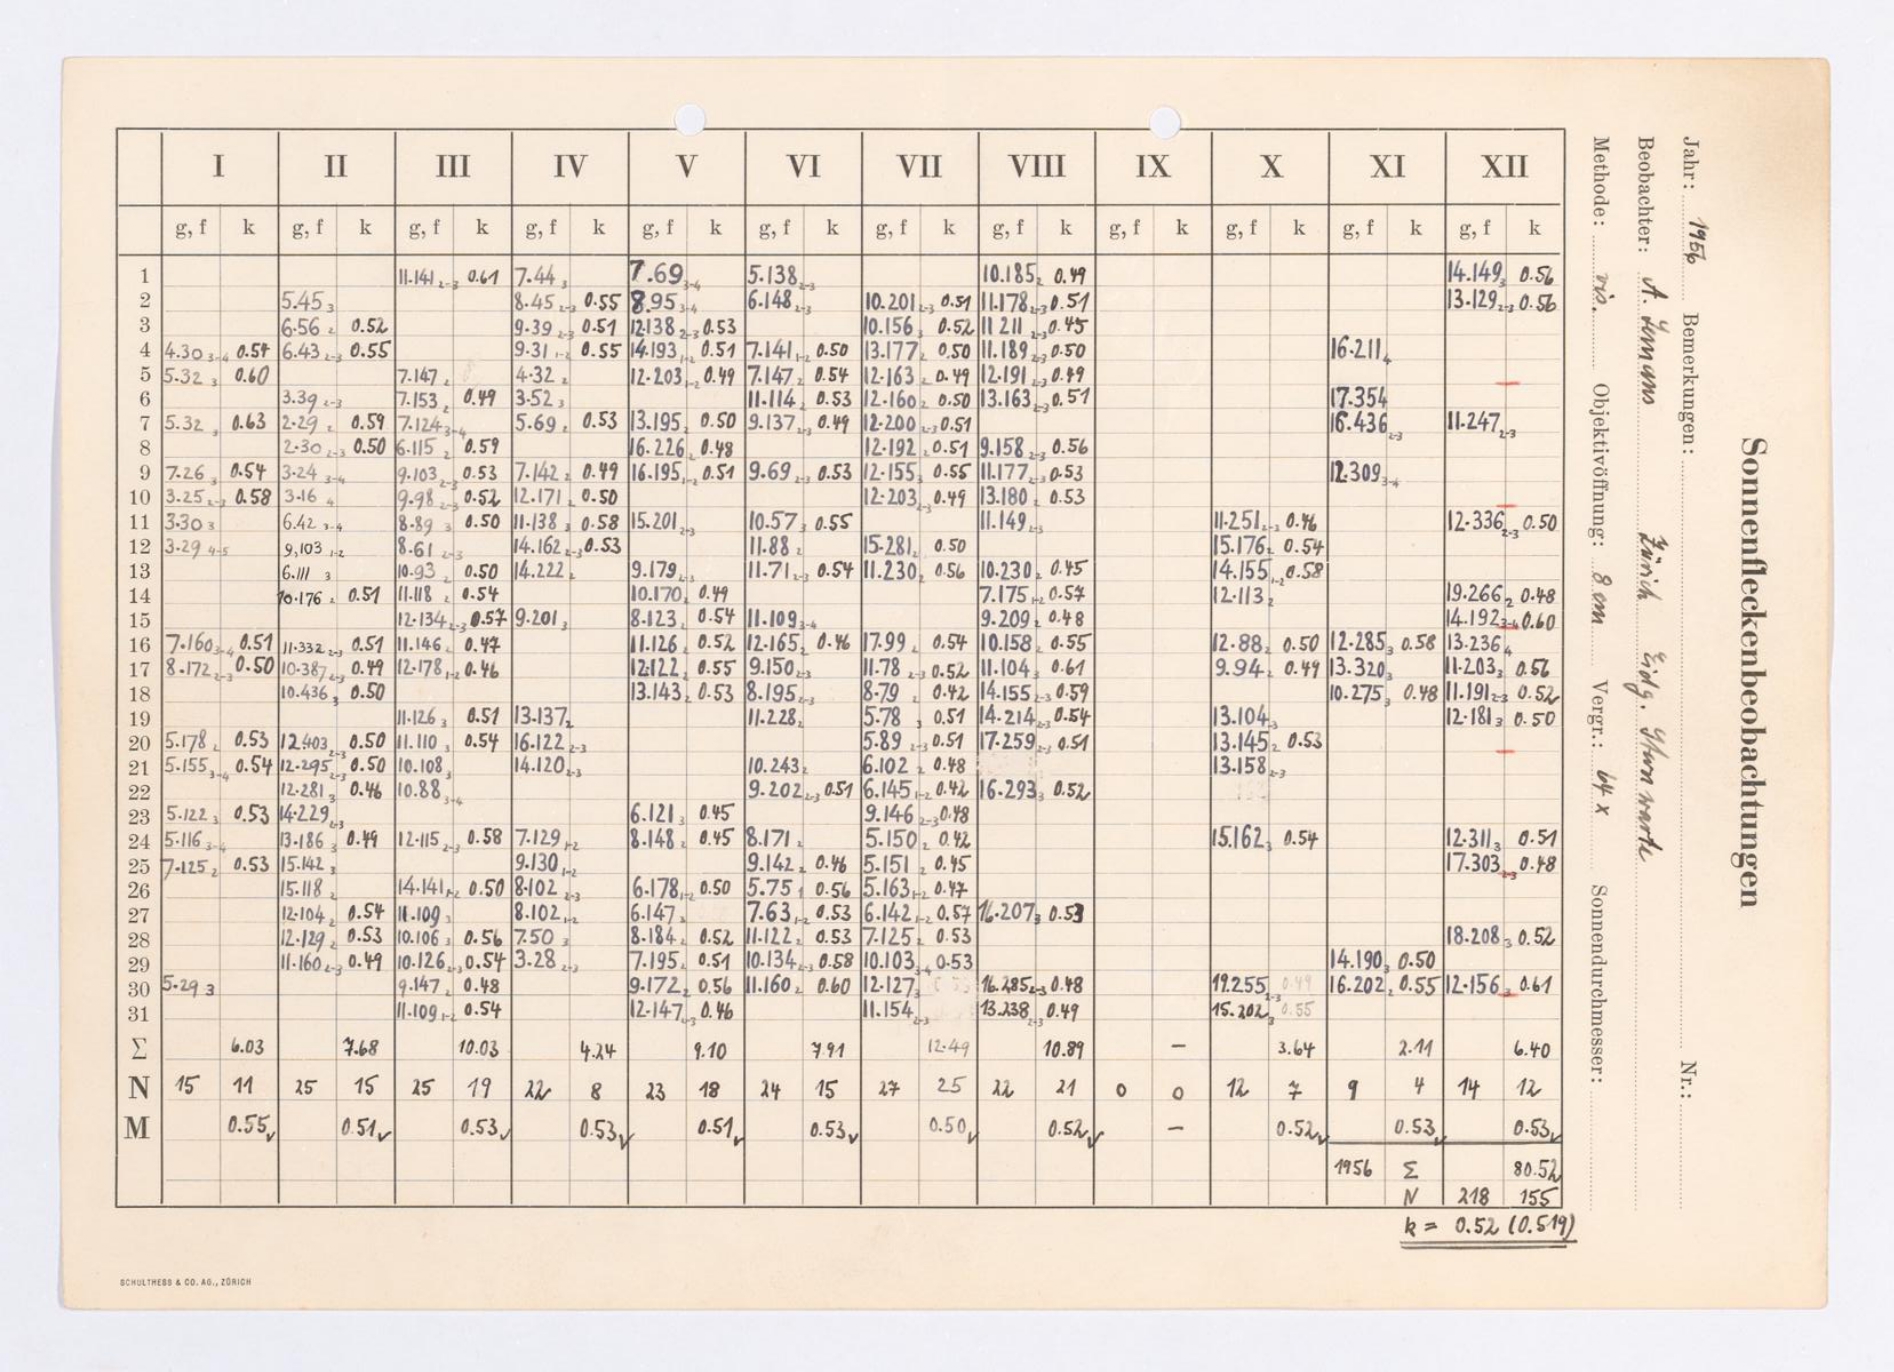 Sonnenfleckenbeobachtungen
Jahr: 1956 Bemerkungen: Nr.:
Beobachter: A. Zürich Eidg. Sternwarte
Methode: vis. Objektivöffnung: 8 cm Vergr.: 64 x Sonnendurchmesser:
I II III IV V VI VII VIII IX X XI XII
g, f k g, f k g, f k g, f k g, f k g, f k g, f k g, f k g, f k g, f k g, f k g, f k
1 11.141 2-3 0.61 7.44 3 7.69 3-4 5.138 2-3 10.185 2 0.49 14.149 3 0.56
2 5.45 3 8.45 2-3 0.55 8.95 3-4 6.148 2-3 10.201 2-3 0.51 11.178 2-3 0.51 13.129 2-3 0.56
3 6.56 2 0.52 9.39 2-3 0.51 12.138 2-3 0.53 10.156 3 0.52 11 211 2-3 0.45
4 4.30 3-4 0.54 6.43 2-3 0.55 9.31 1-2 0.55 14.193 1-2 0.51 7.141 1-2 0.50 13.177 2 0.50 11.189 2-3 0.50 16.211 4
5 5.32 3 0.60 7.147 2 4.32 2 12.203 1-2 0.49 7.147 2 0.54 12.163 2 0.49 12.191 2-3 0.49
6 3.39 2-3 7.153 2 0.49 3.52 3 11.114 2 0.53 12.160 2 0.50 13.163 2-3 0.51 17.354
7 5.32 3 0.63 2.29 2 0.59 7.124 3-4 5.69 2 0.53 13.195 2 0.50 9.137 2-3 0.49 12.200 2-3 0.51 16.436 2-3 11.247 2-3
8 2.30 2-3 0.50 6.115 2 0.59 16.226 2 0.48 12.192 2 0.51 9.158 2-3 0.56
9 7.26 3 0.54 3.24 3-4 9.103 2-3 0.53 7.142 2 0.49 16.195 1-2 0.51 9.69 2-3 0.53 12.155 2 0.55 11.177 2-3 0.53 12.309 3-4
10 3.25 2-3 0.58 3.16 4 9.98 2-3 0.52 12.171 2 0.50 12.203 2-3 0.49 13.180 2 0.53
11 3.30 3 6.42 3-4 8.89 3 0.50 11.138 3 0.58 15.201 2-3 10.57 3 0.55 11.149 2-3 11.251 2-3 0.46 12.336 2-3 0.50
12 3.29 4-5 9,103 1-2 8.61 2-3 14.162 2-3 0.53 11.88 2 15.281 2 0.50 15.176 2 0.54
13 6.111 3 10.93 2 0.50 14.222 2 9.179 2-3 11.71 2-3 0.54 11.230 2 0.56 10.230 2 0.45 14.155 1-2 0.58
14 10.176 2 0.51 11.118 2 0.54 10.170 2 0.49 7.175 1-2 0.57 12.113 2 19.266 2 0.48
15 12.134 2-3 0.57 9.201 3 8.123 2 0.54 11.109 3-4 9.209 2 0.48 14.192 3-4 0.60
16 7.160 3-4 0.51 11.332 2-3 0.51 11.146 2 0.47 11.126 2 0.52 12.165 2 0.46 17.99 2 0.54 10.158 2 0.55 12.88 2 0.50 12.285 3 0.58 13.236 4
17 8.172 2-3 0.50 10.387 2-3 0.49 12.178 1-2 0.46 12.122 2 0.55 9.150 2-3 11.78 2-3 0.52 11.104 3 0.61 9.94 2 0.49 13.320 3 11.203 3 0.56
18 10.436 3 0.50 13.143 2 0.53 8.195 2-3 8.79 2 0.42 14.155 2-3 0.59 10.275 3 0.48 11.191 2-3 0.52
19 11.126 3 0.51 13.137 2 11.228 2 5.78 3 0.51 14.214 2-3 0.54 13.104 3 12.181 3 0.50
20 5.178 2 0.53 12.403 2-3 0.50 11.110 3 0.54 16.122 2-3 5.89 2-3 0.51 17.259 2-3 0.51 13.145 2 0.53
21 5.155 3-4 0.54 12.295 2-3 0.50 10.108 3 14.120 2-3 10.243 2 6.102 2 0.48 13.158 2-3
22 12.281 3 0.46 10.88 3-4 9.202 2-3 0.51 6.145 1-2 0.42 16.293 3 0.52
23 5.122 3 0.53 14.229 2-3 6.121 3 0.45 9.146 2-3 0.48
24 5.116 3-4 13.186 3 0.49 12.115 2-3 0.58 7.129 1-2 8.148 2 0.45 8.171 2 5.150 2 0.42 15.162 3 0.54 12.311 3 0.51
25 7.125 2 0.53 15.142 3 9.130 1-2 9.142 2 0.46 5.151 2 0.45 17.303 2-3 0.48
26 15.118 2 14.141 1-2 0.50 8.102 2-3 6.178 1-2 0.50 5.75 1 0.56 5.163 1-2 0.47
27 12.104 2 0.54 11.109 3 8.102 1-2 6.147 2 7.63 1-2 0.53 6.142 1-2 0.57 16.207 3 0.53
28 12.129 2 0.53 10.106 3 0.56 7.50 3 8.184 2 0.52 11.122 2 0.53 7.125 2 0.53 18.208 3 0.52
29 11.160 2-3 0.49 10.126 2-3 0.54 3.28 2-3 7.195 2 0.51 10.134 2-3 0.58 10.103 3-4 0.53 14.190 3 0.50
30 5.29 3 9.147 2 0.48 9.172 2 0.56 11.160 2 0.60 12.127 3 16.285 2-3 0.48 19.255 2-3 0.49 16.202 2 0.55 12.156 3 0.61
31 11.109 1-2 0.54 12.147 2-3 0.46 11.154 2-3 13.238 2-3 0.49 15.202 3 0.55
Σ 6.03 7.68 10.03 4.24 9.10 7.91 12.49 10.89 – 3.64 2.11 6.40
N 15 11 25 15 25 19 22 8 23 18 24 15 27 25 22 21 0 0 12 7 9 4 14 12
M 0.55 0.51 0.53 0.53 0.51 0.53 0.50 0.52 – 0.52 0.53 0.53
1956 Σ 80.52
N 218 155
k = 0.52 (0.519)
SCHULTHESS & CO. AG., ZÜRICH